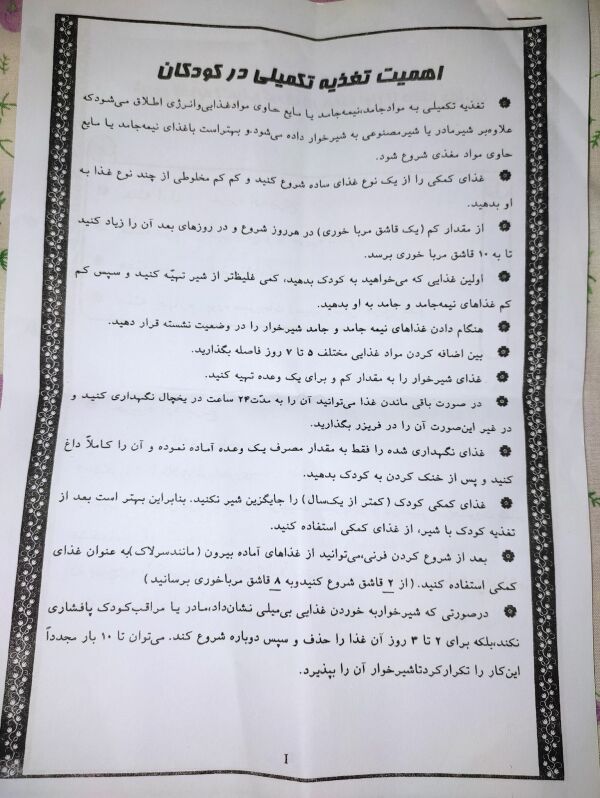 اهمیت تغذیه تکمیلی در کودکان
تغذیه تکمیلی به موادجامد،نیمه‌جامد یا مایع حاوی موادغذایی‌وانرژی اطلاق می‌شودکه
علاوه‌بر شیرمادر یا شیرمصنوعی به شیرخوار داده می‌شودو بهتراست باغذای نیمه‌جامد یا مایع
حاوی مواد مغذی شروع شود.
غذای کمکی را از یک نوع غذای ساده شروع کنید و کم کم مخلوطی از چند نوع غذا به
او بدهید.
از مقدار کم (یک قاشق مربا خوری) در هرروز شروع و در روزهای بعد آن را زیاد کنید
تا به ۱۰ قاشق مربا خوری برسد.
اولین غذایی که می‌خواهید به کودک بدهید، کمی غلیظ‌تر از شیر تهیّه کنید و سپس کم
کم غذاهای نیمه‌جامد و جامد به او بدهید.
هنگام دادن غذاهای نیمه جامد و جامد شیرخوار را در وضعیت نشسته قرار دهید.
بین اضافه کردن مواد غذایی مختلف ۵ تا ۷ روز فاصله بگذارید.
غذای شیرخوار را به مقدار کم و برای یک وعده تهیه کنید.
در صورت باقی ماندن غذا می‌توانید آن را به مدّت۲۴ ساعت در یخچال نگهداری کنید و
در غیر این‌صورت آن را در فریزر بگذارید.
غذای نگهداری شده را فقط به مقدار مصرف یک وعده آماده نموده و آن را کاملاً داغ
کنید و پس از خنک کردن به کودک بدهید.
غذای کمکی کودک (کمتر از یک‌سال) را جایگزین شیر نکنید. بنابراین بهتر است بعد از
تغذیه کودک با شیر، از غذای کمکی استفاده کنید.
بعد از شروع کردن فرنی،می‌توانید از غذاهای آماده بیرون (مانندسرلاک)به عنوان غذای
کمکی استفاده کنید. (از ۲ قاشق شروع کنیدوبه ۸ قاشق مرباخوری برسانید)
درصورتی که شیرخواربه خوردن غذایی بی‌میلی نشان‌داد،مادر یا مراقب‌کودک پافشاری
نکند،بلکه برای ۲ تا ۳ روز آن غذا را حذف و سپس دوباره شروع کند. می‌توان تا ۱۰ بار مجدداً
این‌کار را تکرارکردتاشیرخوار آن را بپذیرد.
I